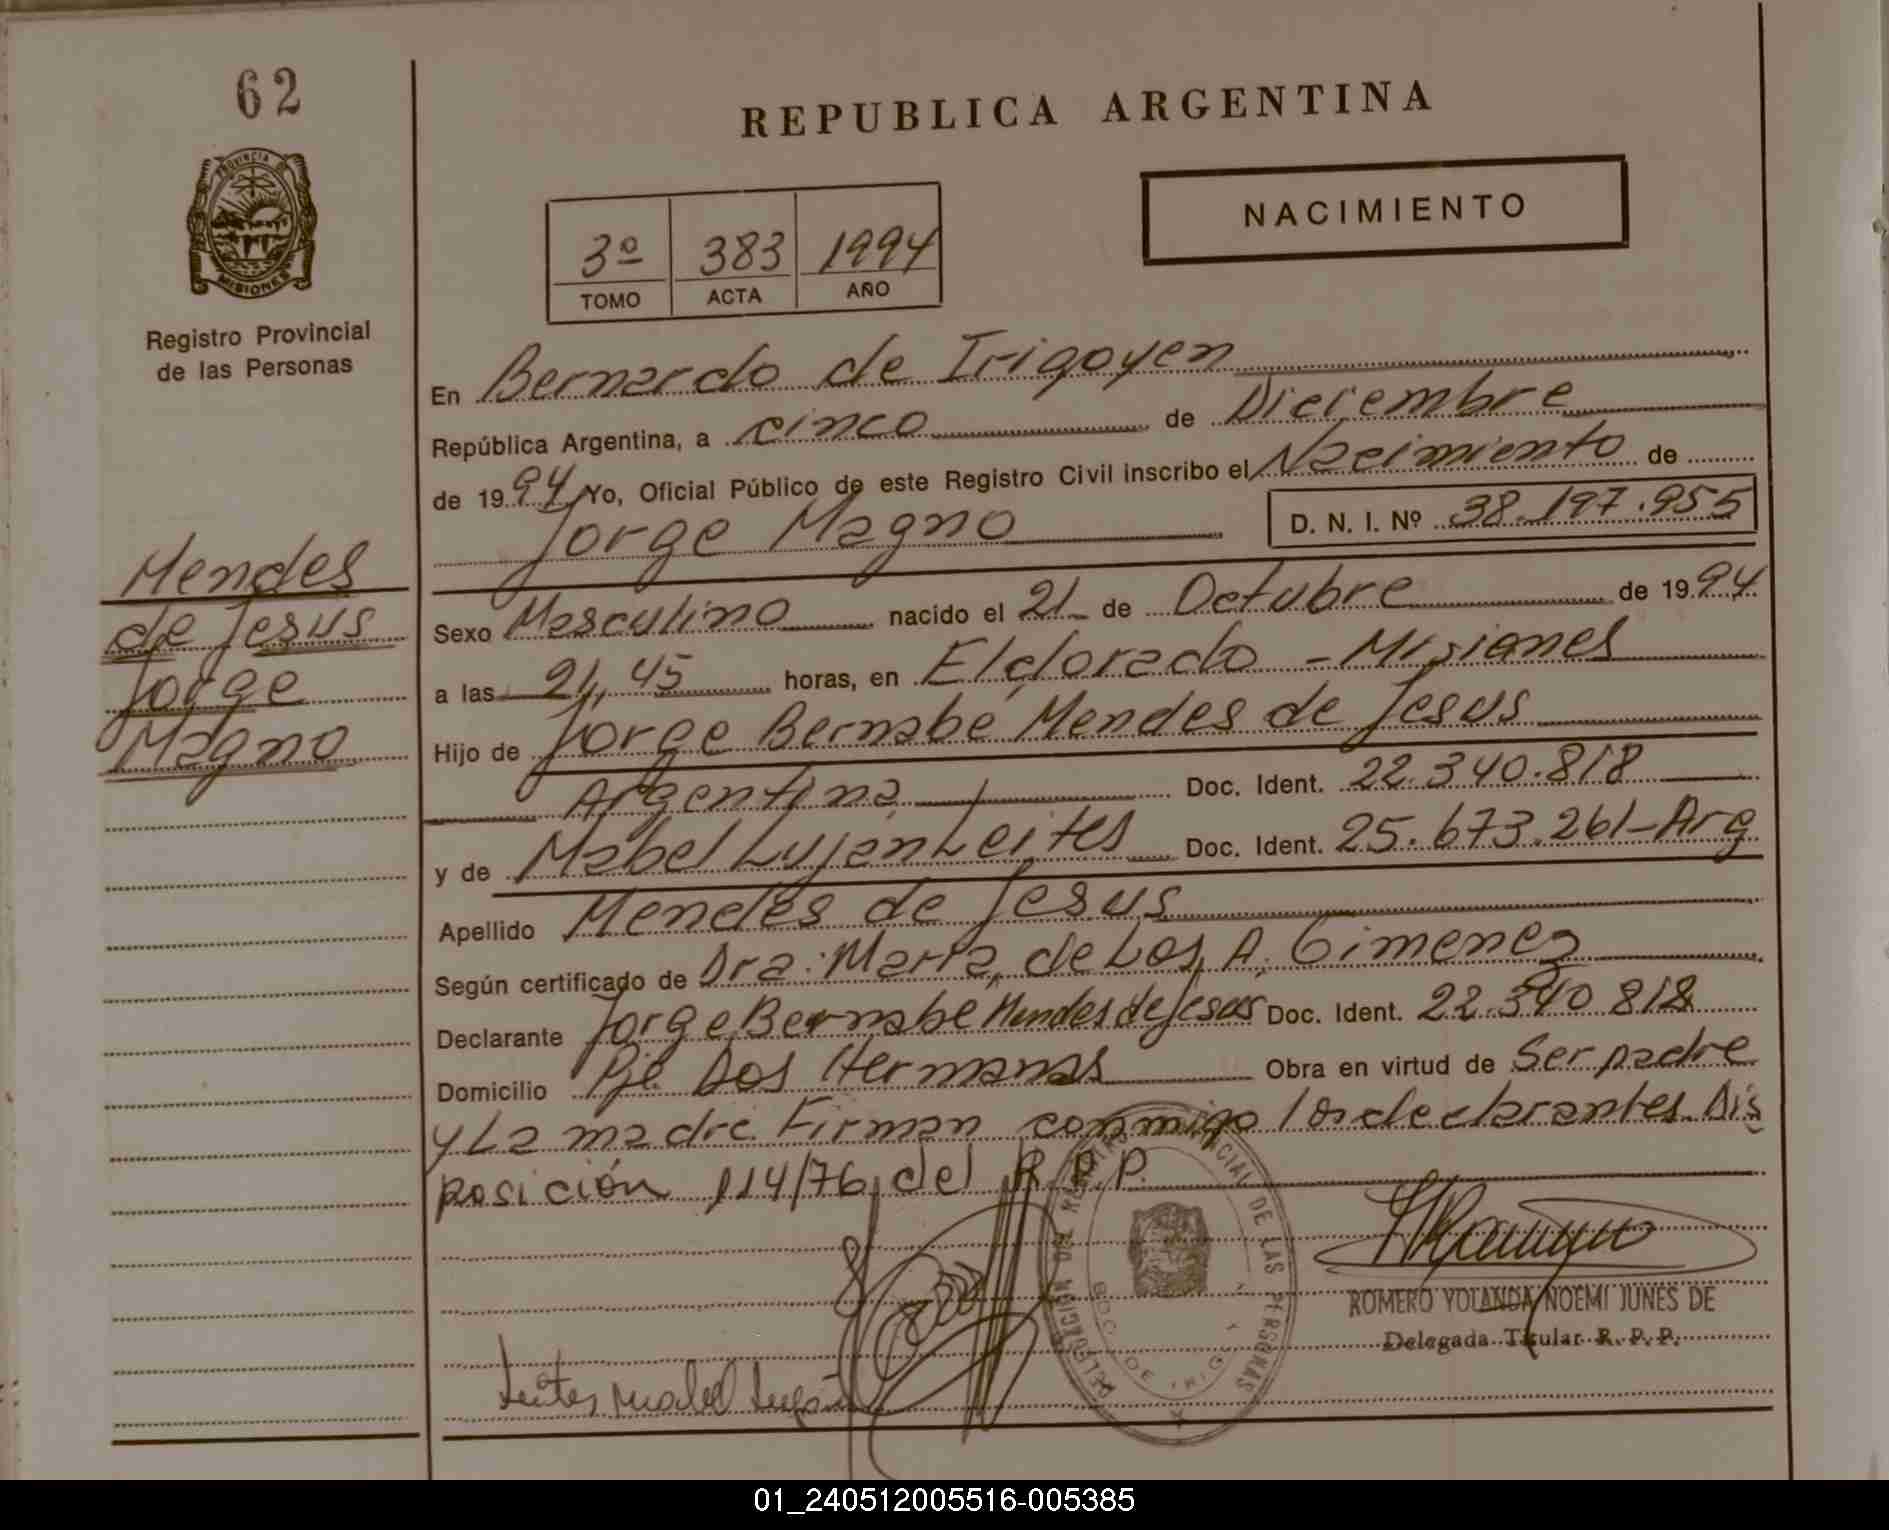 62
REPUBLICA ARGENTINA
PROVINCIA DE
MISIONES
NACIMIENTO
3º 383 1994
TOMO ACTA AÑO
Registro Provincial
de las Personas
En Bernardo de Irigoyen
República Argentina, a cinco de Diciembre
de 1994 Yo, Oficial Público de este Registro Civil inscribo el Nacimiento de
Jorge Magno D. N. I. Nº 38.197.955
Mendes
de Jesus
Jorge
Magno
Sexo Masculino nacido el 21 de Octubre de 1994
a las 21,45 horas, en Eldorado - Misiones
Hijo de Jorge Bernabé Mendes de Jesus
Argentina Doc. Ident. 22.340.818
y de Mabel Luján Leites Doc. Ident. 25.673.261-Arg
Apellido Mendes de Jesus
Según certificado de Dra: María de Los A. Gimenez
Declarante Jorge Bernabe Mendes de Jesus Doc. Ident. 22.340 818
Domicilio Pje. Dos Hermanas Obra en virtud de Ser padre
y La madre. Firman conmigo los declarantes. Dis
posición 114/76 del R.P.P.
DELEGACION DEL REGISTRO PROVINCIAL DE LAS PERSONAS
BDO. DE IRIGOYEN
ROMERO YOLANDA NOEMI JUNES DE
Delegada Titular R. P. P.
Leites Mabel Luján
01_240512005516-005385